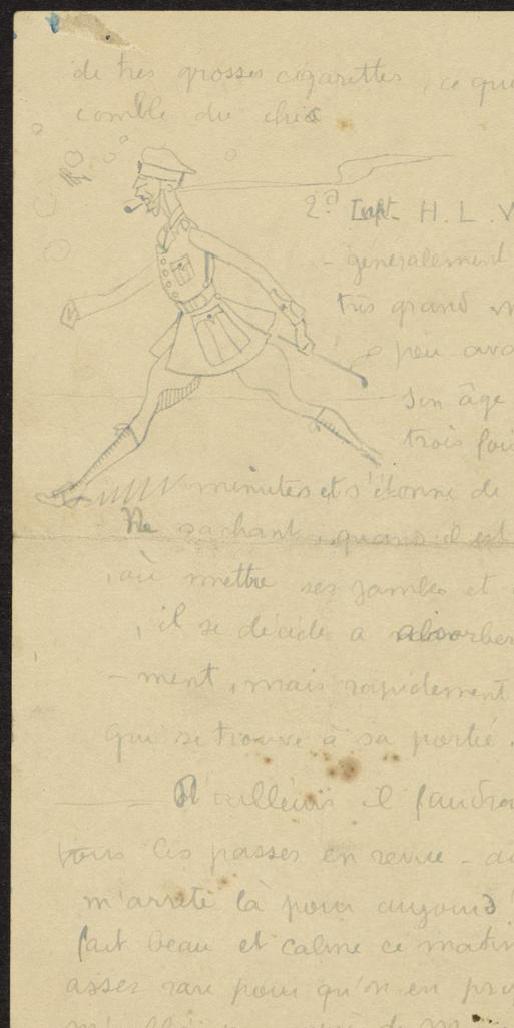 de très grosses cigarettes, ce que
comble du chic
2d H. L. V
- généralement
très grand
peu
son âge
trois foi
minutes et s'étonne de
Ne sachant, quand il est
, où mettre ses jambes et
, il se décide a absorber
- ment, mais rapidement
qui se trouve à sa portée.
D'ailleurs il faudra
tous les passer en revue -
m'arrête là pour aujourd
fait beau et calme ce matin
assez rare pour qu'on en pro